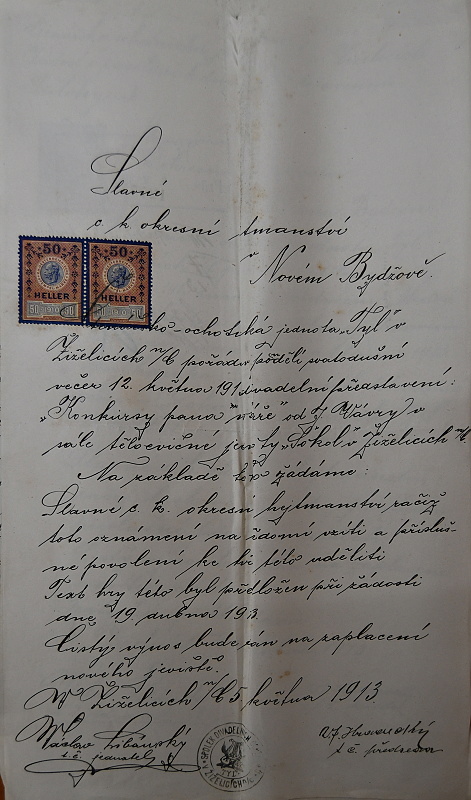 Slavné
c. k. okresní tmanství
v
Novém Bydžově.
50 50
HELLER HELLER
1910
ochotská jednota „Tyl“ v
Žiželicích n/C pořádá v pondělí svatodušní
večer 12. května 191 divadelní představení:
„Konkursy pana náře“ od J. Vávry v
sále tělocvičné jednoty „Sokol“ v Žiželicích n/C.
Na základě toho žádáme:
Slavné c. k. okresní hejtmanství račiž
toto oznámení na vědomí vzíti a přísluš-
né povolení ke hře této uděliti
Text hry této byl předložen při žádosti
dne 19. dubna 193.
Čistý výnos bude dán na zaplacení
nového jeviště.
V Žiželicích n/C 5 května 1913.
Václav Libánský
t. č. jednatel
t. č. předseda